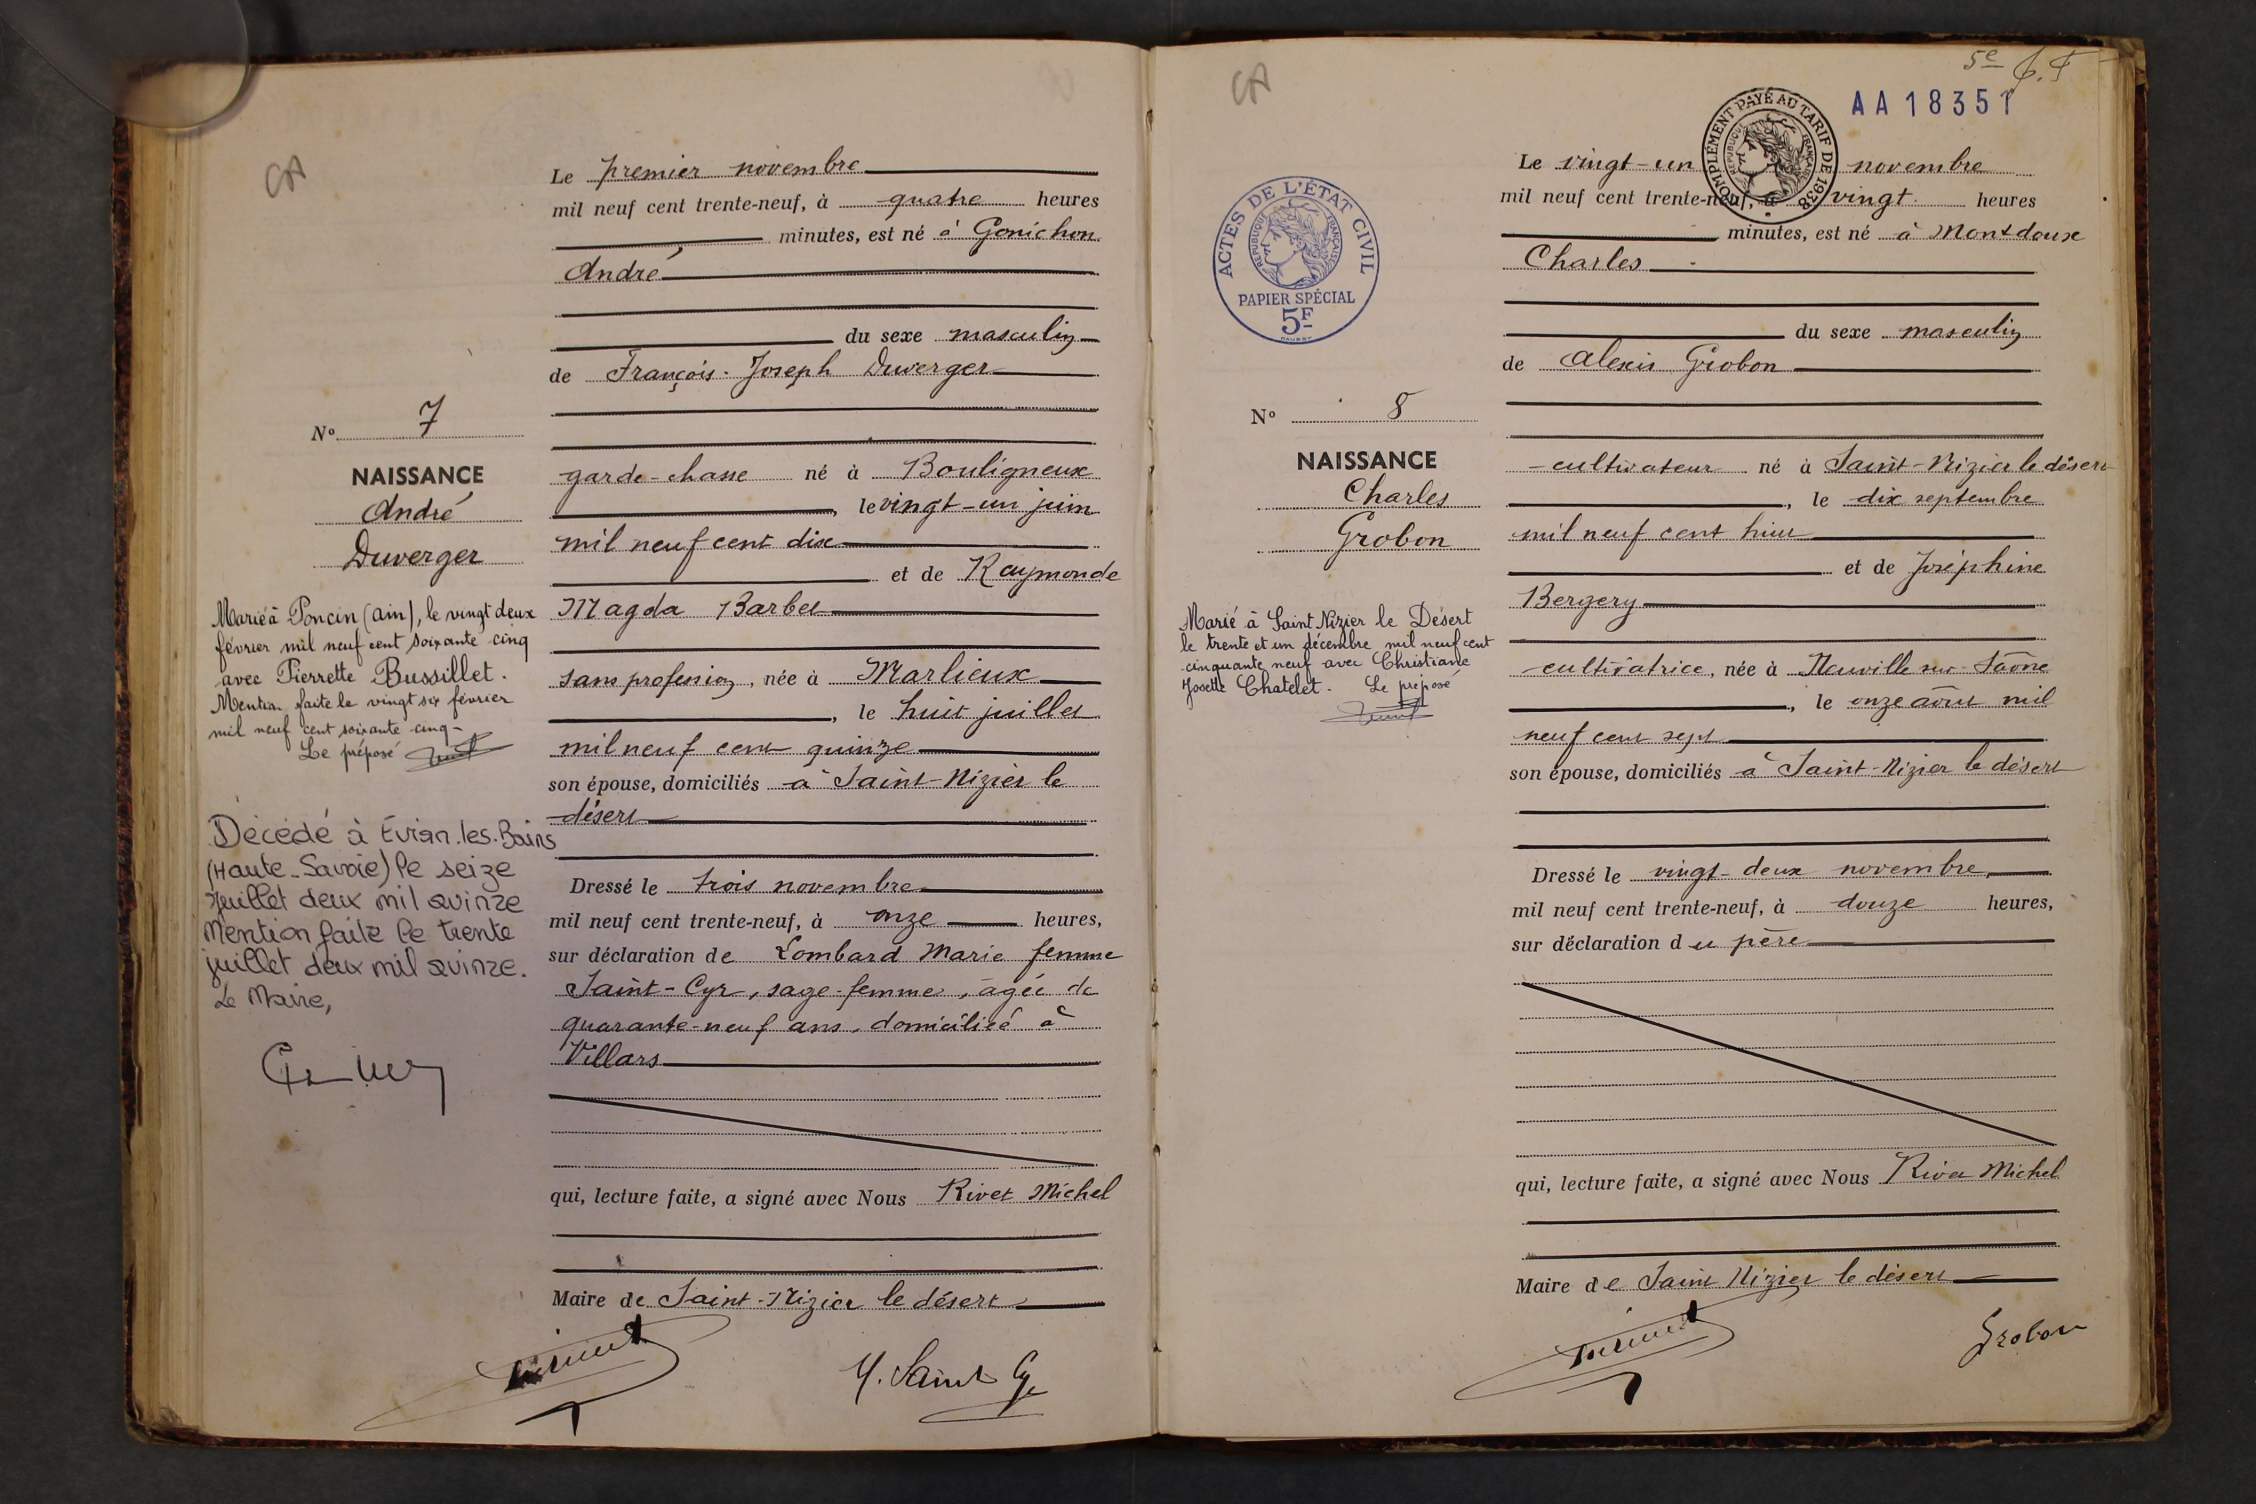 Le premier novembre
mil neuf cent trente-neuf, à quatre heures
minutes, est né à Gonichon
André
du sexe masculin
de François-Joseph Duverger
garde-chasse né à Bouligneux
, le vingt-un juin
mil neuf cent dix
et de Raymonde
Magda Barbet
sans profession, née à Marlieux
, le huit juillet
mil neuf cent quinze
son épouse, domiciliés à Saint-Nizier le
désert
Dressé le trois novembre
mil neuf cent trente-neuf, à onze heures,
sur déclaration de Lombard Marie femme
Saint-Cyr, sage-femme, âgée de
quarante-neuf ans, domiciliée à
Villars
qui, lecture faite, a signé avec Nous Rivet Michel
Maire de Saint-Nizier le désert
M. Saint Cyr
No 7
NAISSANCE
André
Duverger
Marié à Poncin (Ain), le vingt deux
février mil neuf cent soixante cinq
avec Pierrette Bussillet.
Mention faite le vingt six février
mil neuf cent soixante cinq-
Le préposé
Décédé à Évian.les.Bains
(Haute-Savoie) le seize
juillet deux mil quinze
Mention faite le trente
juillet deux mil quinze.
Le Maire,
5e
AA 18351
COMPLÉMENT PAYÉ AU TARIF DE 1938
RÉPUBLIQUE FRANÇAISE
ACTES DE L'ÉTAT CIVIL
RÉPUBLIQUE FRANÇAISE
PAPIER SPÉCIAL
5F
Le vingt-un novembre
mil neuf cent trente-neuf, à vingt heures
minutes, est né à Montdoux
Charles
du sexe masculin
de Alexis Grobon
cultivateur né à Saint-Nizier le désert
, le dix septembre
mil neuf cent huit
et de Joséphine
Bergery
cultivatrice, née à Neuville sur Saône
, le onze août mil
neuf cent sept
son épouse, domiciliés à Saint-Nizier le désert
Dressé le vingt-deux novembre,
mil neuf cent trente-neuf, à douze heures,
sur déclaration du père
qui, lecture faite, a signé avec Nous Rivet Michel
Maire de Saint Nizier le désert
Grobon
No 8
NAISSANCE
Charles
Grobon
Marié à Saint Nizier le Désert
le trente et un décembre mil neuf cent
cinquante neuf avec Christiane
Josette Chatelet. Le préposé